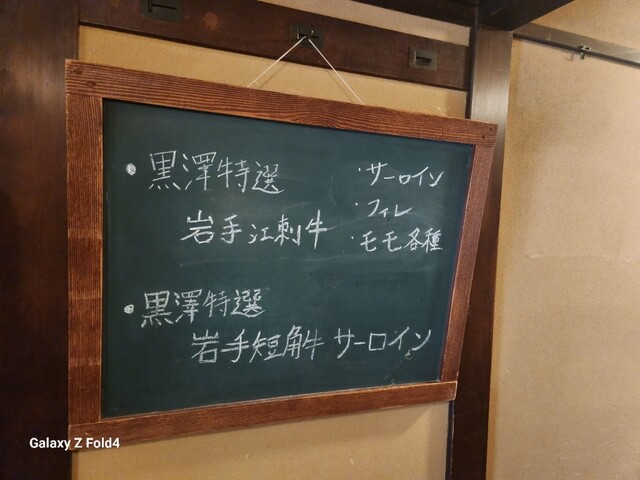 • 黒澤特選
岩手江刺牛
・サーロイン
・フィレ
・モモ各種
• 黒澤特選
岩手短角牛 サーロイン
Galaxy Z Fold4